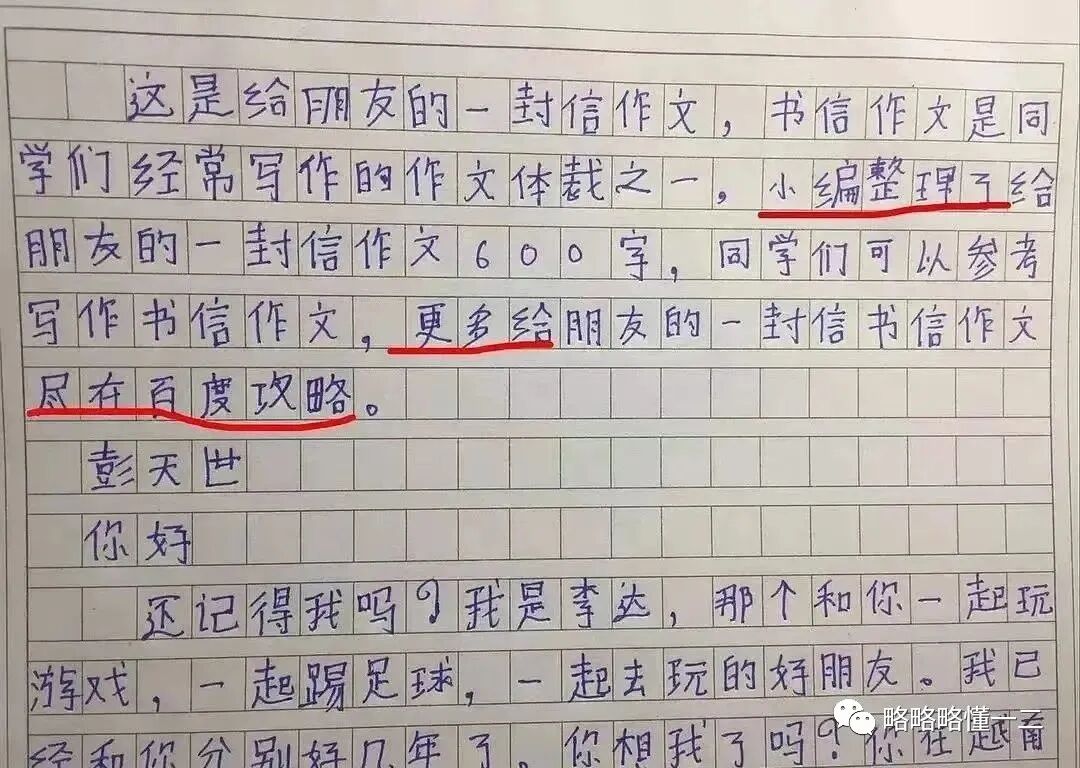 这是给朋友的一封信作文，书信作文是同
学们经常写作的作文体裁之一。小编整理了给
朋友的一封信作文600字，同学们可以参考
写作书信作文，更多给朋友的一封信书信作文
尽在百度攻略。
彭天世
你好
还记得我吗？我是李达，那个和你一起玩
游戏，一起踢足球，一起去玩的好朋友。我已
经和你分别好几年了，你想我了吗？你在越南
略略略懂一二